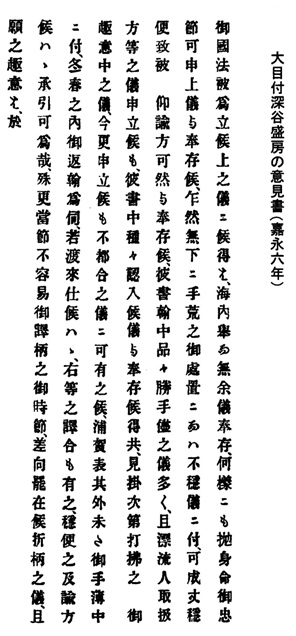 大目付深谷盛房の意見書(嘉永六年)
御國法被爲立候上之儀ニ候得ゟ、海内擧る無余儀奉存、何樣ニも抛身命御忠
節可申上儀与奉存候、乍然無下ニ手荒之御處置ニゐハ不穩儀ニ付、可成丈穩
便致被 仰諭方可然与奉存候、彼書翰中品々勝手儘之儀多く、且漂流人取扱
方等之儀申立候も、彼書中種々認入候儀与奉存候得共、見掛次第打拂之 御
趣意中之儀、今更申立候も不都合之儀ニ可有之候、浦賀表其外未さ御手薄中
ニ付、冬春之内御返翰爲伺、若渡來仕候ハヽ、右等之譯合も有之、穩便之及諭方
候ハヽ承引可爲哉、殊更當節不容易御譯柄之御時節、差向罷在候折柄之儀、且
願之趣意も、於